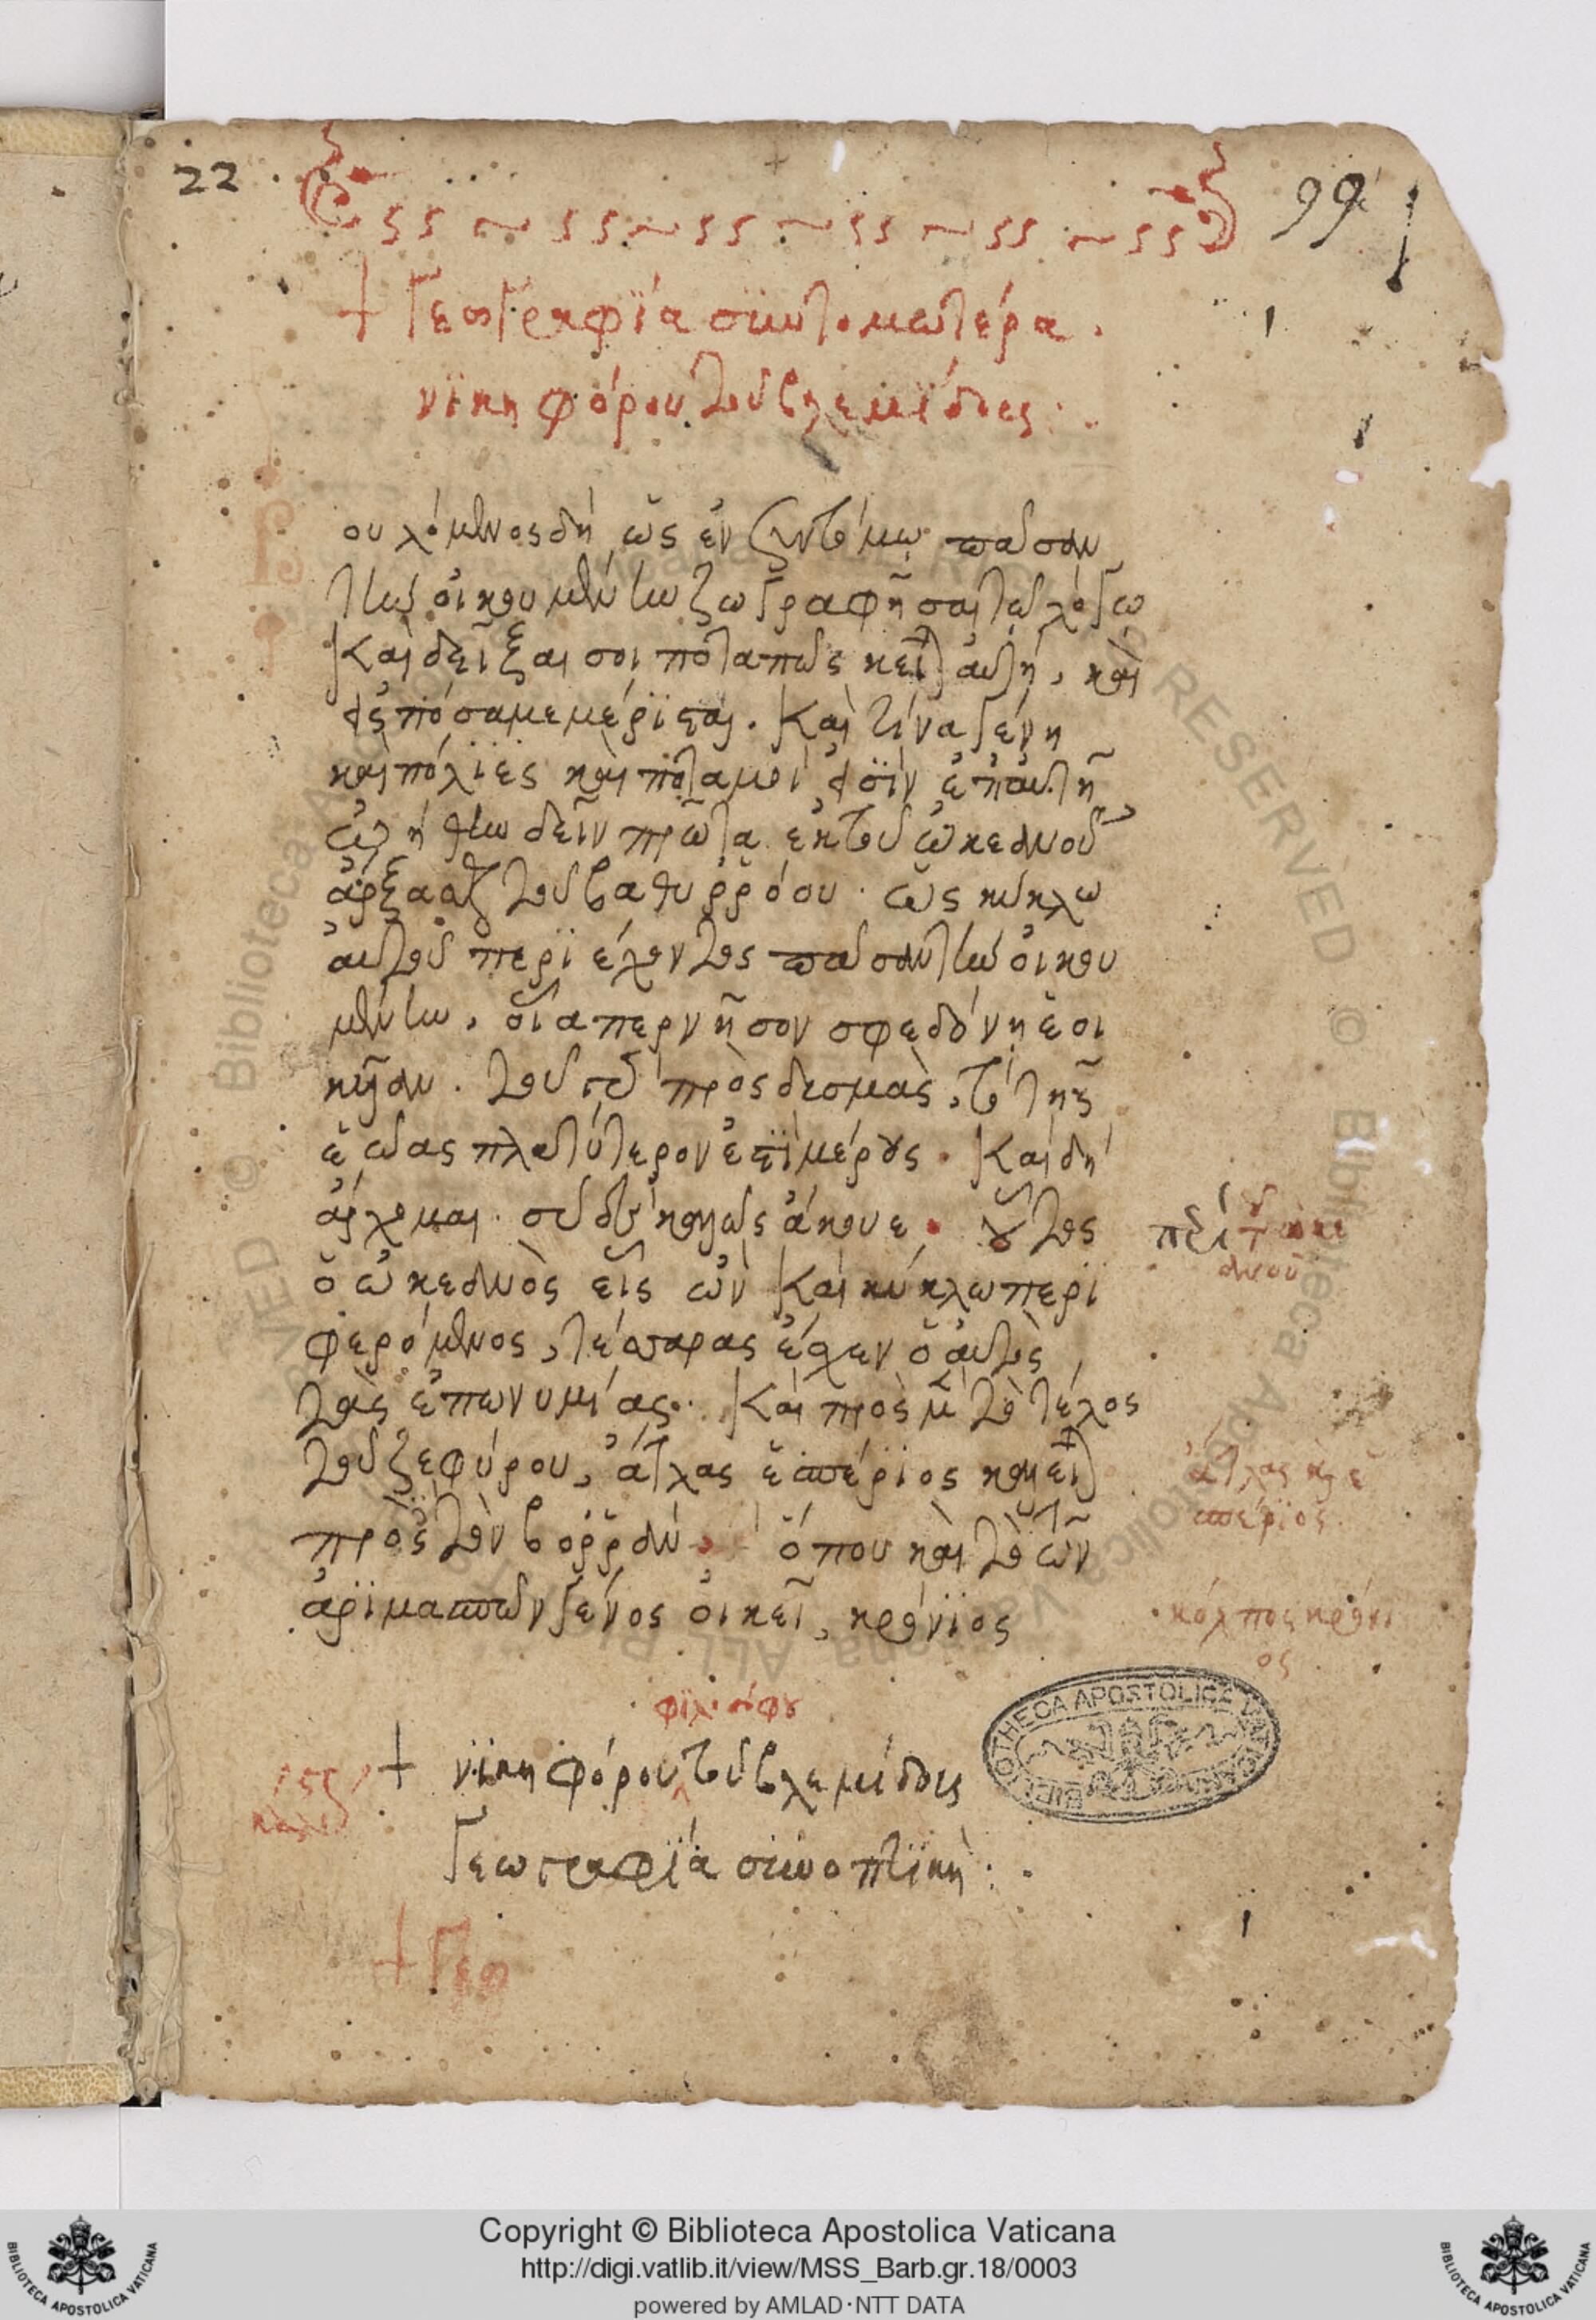 22
99
+ Γεωγραφϊα συντομωτέρα.
νϊκηφόρου τοῦ βλεμίδους:.
Βουλόμενος δὴ ὡς ἐν συντόμῳ πᾶσαν
τὴν οἰκουμένην ζωγραφῆσαι τῷ λόγω
Καὶ δεῖξαί σοι ποταπῶς κεῖται αὐτή, καὶ
εἰς πόσα μεμέρϊσται. Καὶ τίνα γένη
καὶ πόλϊες καὶ ποταμοὶ εἰσϊν ἐπ' αὐτῆ
ᾠήθην δεῖν πρῶτα ἐκ τοῦ ὠκεανοῦ
ἄρξασθαι τοῦ βαθυρρόου. ὡς κύκλω
αὐτοῦ περϊέχοντος πᾶσαν τὴν οἰκου
μένην, οἷάπερ νῆσον σφεδόνη ἐοι
κυῖαν. τοῦτο πρὸς δυσμὰς, τὸ τῆς
ἑώας πλατύτερον ἐπϊ μέρους. Καὶ δὴ
ἄρχομαι. σὺ δὲ καλῶς ἄκουε. οὗτος
ὁ ὠκεανὸς εἷς ὢν Καὶ κύκλω περϊ
φερόμενος, τέσσαρας ἔσχεν ὁ αὐτὸς
τὰς ἐπωνυμίας. Καὶ πρὸς μὲν τὸ τέλος
τοῦ ζεφύρου, ἄτλας ἑσπέρϊος καλεῖται
πρὸς τὸν βορρᾶν. ὅπου καὶ τὸ τῶν
ἀρϊμασπῶν γένος οἰκεῖ, κρόνϊος
περὶ τοῦ ὠκε
ανοῦ
ἄτλας καὶ ἑ
σπέρϊος.
κόλπος κρόνι
ος
φϊλοσόφου
+ νϊκηφόρου τοῦ βλεμίδους
Γεωγραφϊα συνοπτϊκὴ:.
+ Γεω
BIBLIOTHECA APOSTOLICA VATICANA
© Biblioteca Apostolica Vaticana ALL RIGHTS RESERVED
Copyright © Biblioteca Apostolica Vaticana
http://digi.vatlib.it/view/MSS_Barb.gr.18/0003
powered by AMLAD·NTT DATA
BIBLIOTECA APOSTOLICA VATICANA
BIBLIOTECA APOSTOLICA VATICANA